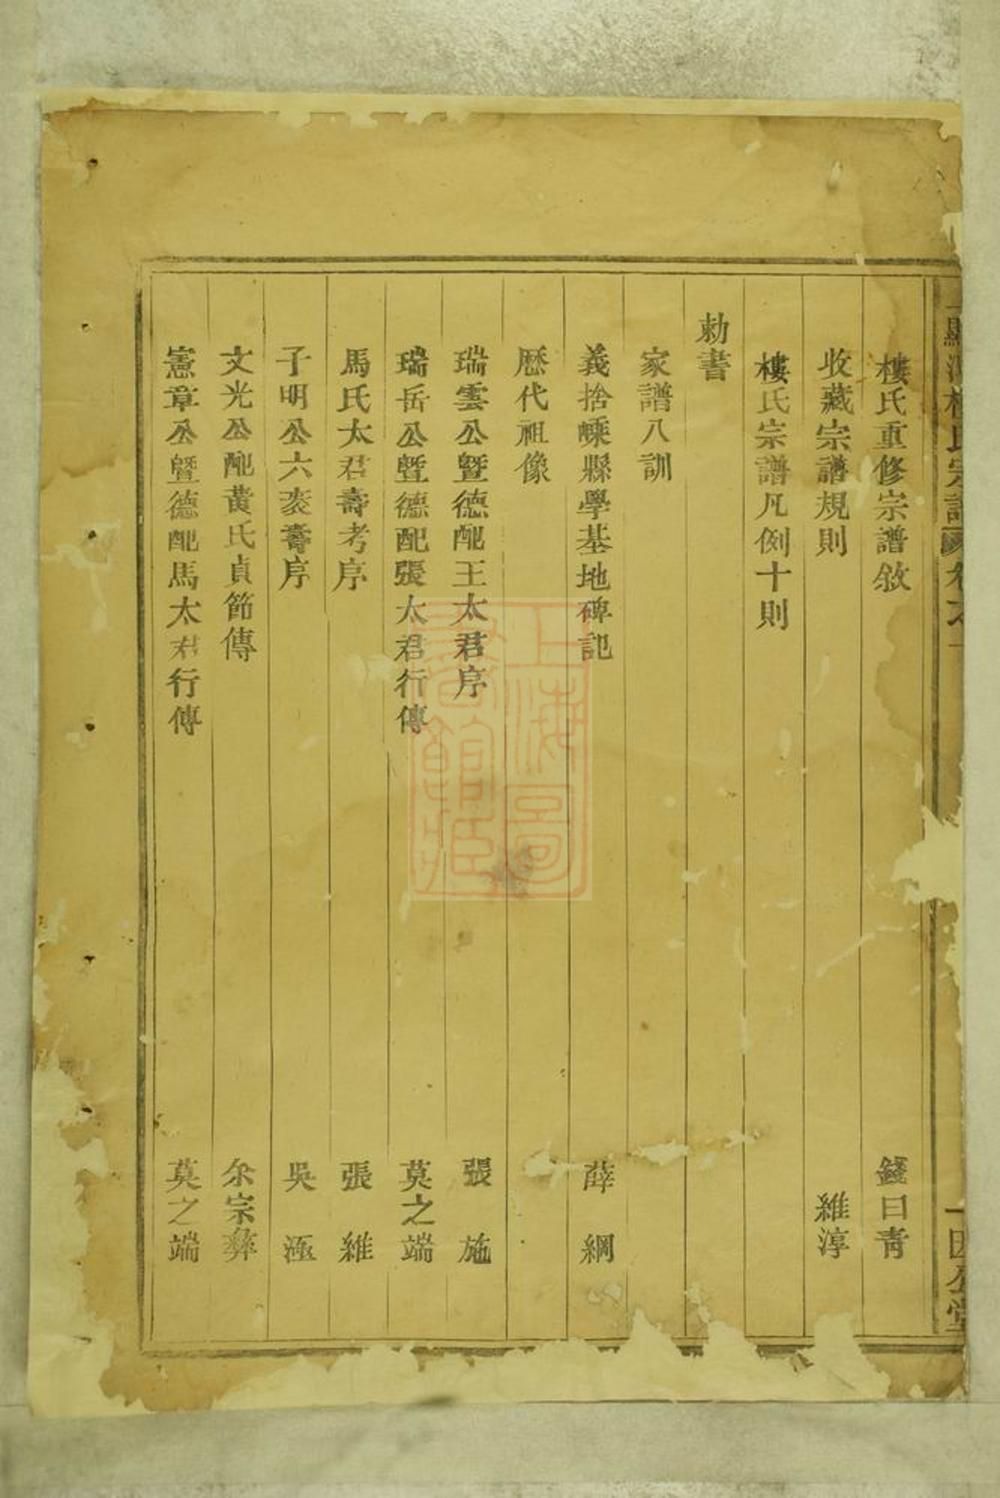 樓氏重修宗譜敘 錢曰青
收藏宗譜規則 維淳
樓氏宗譜凡例十則
勅書
家譜八訓
義捨嵊縣學基地碑記 薛綱
歷代祖像
瑞雲公暨德配王太君序 張施
瑞岳公暨德配張太君行傳 莫之端
馬氏太君壽考序 張維
子明公六袠壽序 吳
文光公配黃氏貞節傳 余宗彝
憲章公暨德配馬太君行傳 莫之端
樓氏宗譜 卷之一
上海圖書館藏